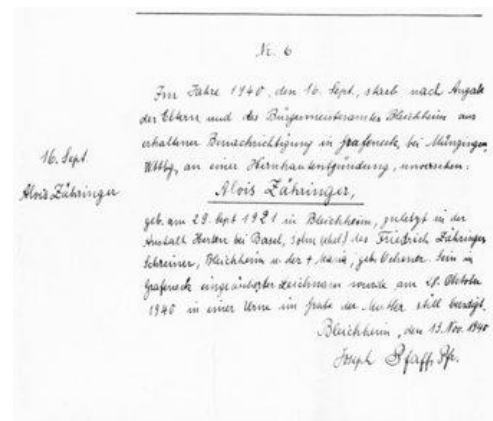 Nr. 6
Im Jahre 1940, den 16. Sept., starb nach Angabe
der Eltern und des Bürgermeisteramtes Bleichheim aus
erhaltener Benachrichtigung in Grafeneck, bei Münsingen,
Wttbg, an einer Hirnhautentzündung, unversehen:
16. Sept.
Alois Zähringer
Alois Zähringer,
geb. am 29. Sept 1921 in Bleichheim, zuletzt in der
Anstalt Herten bei Basel, Sohn (ehel.) des Friedrich Zähringer
Schreiner, Bleichheim u. der + Maria, geb. Ochsner. Sein in
Grafeneck eingeäscherter Leichnam wurde am 28. Oktober
1940 in einer Urne im Grabe der Mutter still beerdigt.
Bleichheim, den 13. Nov. 1940
Joseph Pfaff, Pfr.